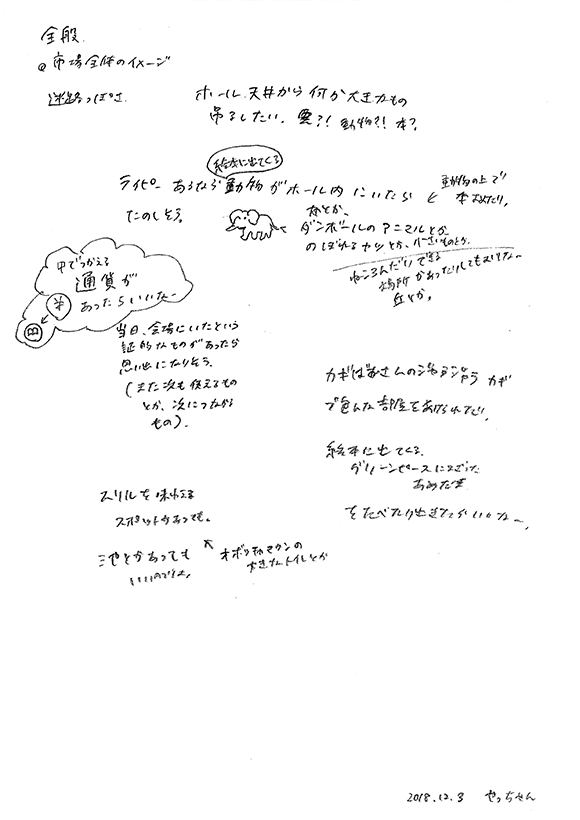 全般.
◎市場全体のイメージ
迷路っぽさ.
ホール、天井から何か大きなもの
吊るしたい. 雲?! 動物?! 本?
絵本に出てくる
ライピー あるなら動物がホール内にいたら
たのしそう.
動物の上で
本よんだり,
ダンボールのアニマルとか
のぼれるヤツとか、小さいものとか.
ねころんだりできる
場所があったりしても
丘とか,
中でつかえる
通貨が
あったらいいなー
¥
当日、会場にいたという
証的なものがあったら
思い出になりそう.
(また次も使えるもの
とか、次につながる
もの).
カギばあさんのジャラジャラ カギ
で色んな部屋をあけられたり,
絵本に出てくる.
グリーンピースに
をたべたり出きたらいいなー,
スリルを味わえる
スポットがあっても。
池とかあっても
いいのでは,
大きなトイレとか
2018.12.3 やっちゃん